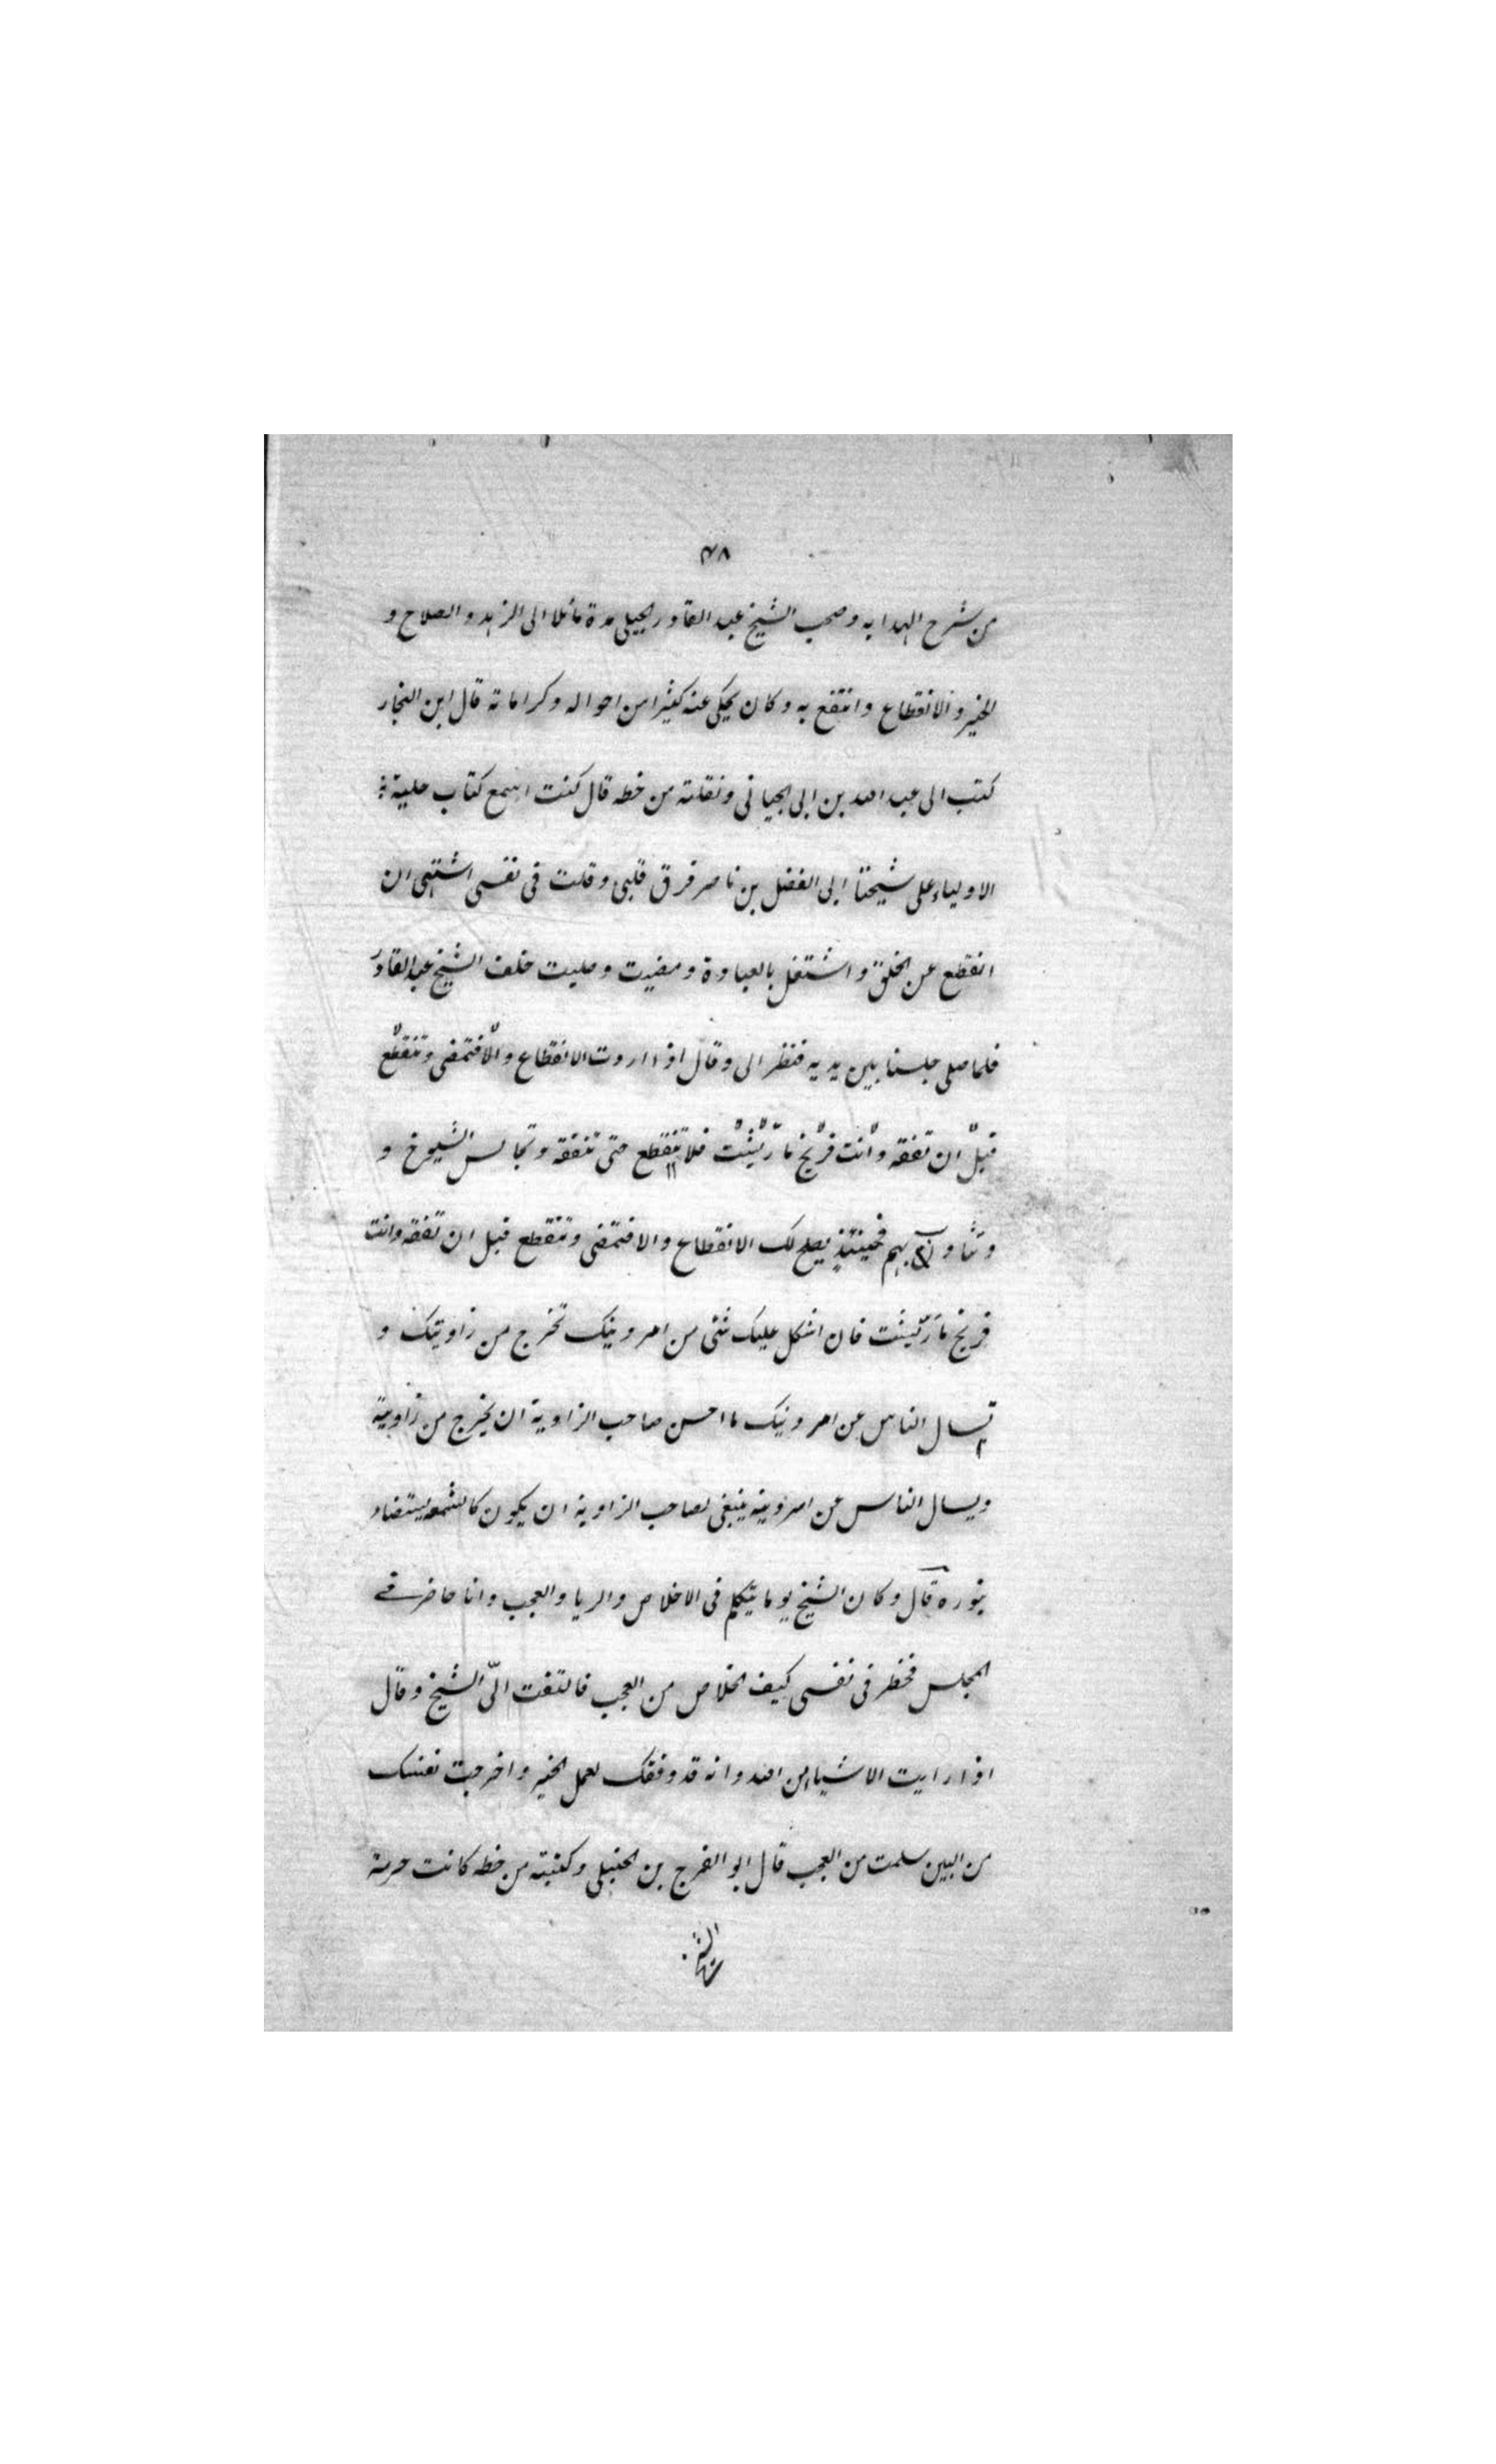 ٣٨
من شرح الهدايه وصحب الشيخ عبد القادر الجيلى مدة مائلا الى الزهد والصلاح و
الخير والانقطاع وانتفع به وكان يحكى عنه كثيرا من احواله وكراماته قال ابن النجار
كتب الى عبد الله بن ابى الجيانى ونقلته من خطه قال كنت اسمع كتاب حلية
الاولياء على شيخنا ابى الفضل بن ناصر فرق قلبى وقلت فى نفسى اشتهى ان
انقطع عن الخلق واشتغل بالعبادة ومضيت وصليت خلف الشيخ عبد القادر
فلما صلى جلسنا بين يديه فنظر الى وقال اذا اردت الانقطاع والا فتمضى وتنقطع
قبل ان تفقه وانت فريخ ما ريشت فلا تنقطع حتى تتفقه وتجالس الشيوخ و
وتتأدب بهم فحينئذ يصلح لك الانقطاع والا فتمضى وتنقطع قبل ان تفقه وانت
فريخ ما ريشت فان اشكل عليك شئ من امر دينك تخرج من زاويتك و
تسال الناس عن امر دينك ما احسن صاحب الزاوية ان يخرج من زاويته
ويسال الناس عن امر دينه ينبغى لصاحب الزاوية ان يكون كالشمعه يستضاء
بنوره قال وكان الشيخ يوما يتكلم فى الاخلاص والريا والعجب وانا حاضر فے
المجلس فخطر فى نفسى كيف الخلاص من العجب فالتفت الىّ الشيخ وقال
اذا رايت الاشياء من الله وانه قد وفقك لعمل الخير واخرجت نفسك
من البين سلمت من العجب قال ابو الفرج بن الحنبلى وكتبته من خطه كانت حرمة
الشيخ